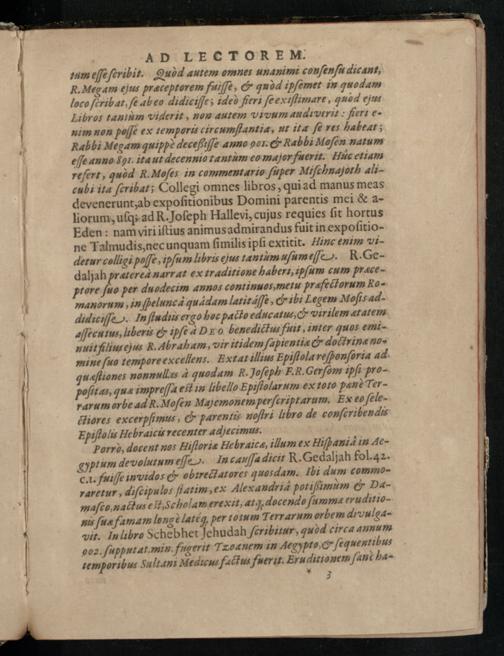 AD LECTOREM.
tum esse scribit. Quòd autem omnes unanimi consensu dicant,
R. Megam ejus præceptorem fuisse, & quòd ipsemet in quodam
loco scribat, se ab eo didicisse; ideò fieri se existimare, quòd ejus
Libros tantùm viderit, non autem vivum audiverit: fieri e-
nim non posse ex temporis circumstantia, ut ita se res habeat;
Rabbi Megam quippè decessisse anno 901. & Rabbi Mosen natum
esse anno 891. ita ut decennio tantùm eo major fuerit. Húc etiam
refert, quòd R. Moses in commentario super Mischnajoth ali-
cubi ita scribat; Collegi omnes libros, qui ad manus meas
devenerunt, ab expositionibus Domini parentis mei & a-
liorum, usq; ad R. Joseph Hallevi, cujus requies sit hortus
Eden: nam viri istius animus admirandus fuit in expositio-
ne Talmudis, nec unquam similis ipsi extitit. Hinc enim vi-
detur colligi posse, ipsum libris ejus tantùm usum esse. R. Ge-
daljah prætereà narrat ex traditione haberi, ipsum cum præce-
ptore suo per duodecim annos continuos, metu præfectorum Ro-
manorum, in speluncâ quâdam latitâsse, & ibi Legem Mosis ad-
didicisse. In studiis ergo hoc pacto educatus, & virilem ætatem
assecutus, liberis & ipse à DEO benedictus fuit, inter quos emi-
nuit filius ejus R. Abraham, vir itidem sapientiæ & doctrinæ no-
mine suo tempore excellens. Extat illius Epistola responsoria ad
quæstiones nonnullas à quodam R. Joseph F. R. Gersom ipsi pro-
positas, quæ impressa est in libello Epistolarum ex toto panè Ter-
rarum orbe ad R. Mosen Majemonem perscriptarum. Ex eo sele-
ctiores excerpsimus, & parentis nostri libro de conscribendis
Epistolis Hebraicis recenter adjecimus.
Porrò, docent nos Historiæ Hebraicæ, illum ex Hispaniâ in Ae-
gyptum devolutum esse. In caussa dicit R. Gedaljah fol. 42.
c. 1. fuisse invidos & obtrectatores quosdam. Ibi dum commo-
raretur, discipulos statim, ex Alexandriâ potissimùm & Da-
masco, nactus est, Scholam erexit, atq; docendo summæ eruditio-
nis suæ famam longè latéq; per totum Terrarum orbem divulga-
vit. In libro Schebhet Jehudah scribitur, quòd circa annum
902. supputat. min. fugerit Tzoanem in Aegypto, & sequentibus
temporibus Sultani Medicus factus fuerit. Eruditionem sanè ha-
* 3